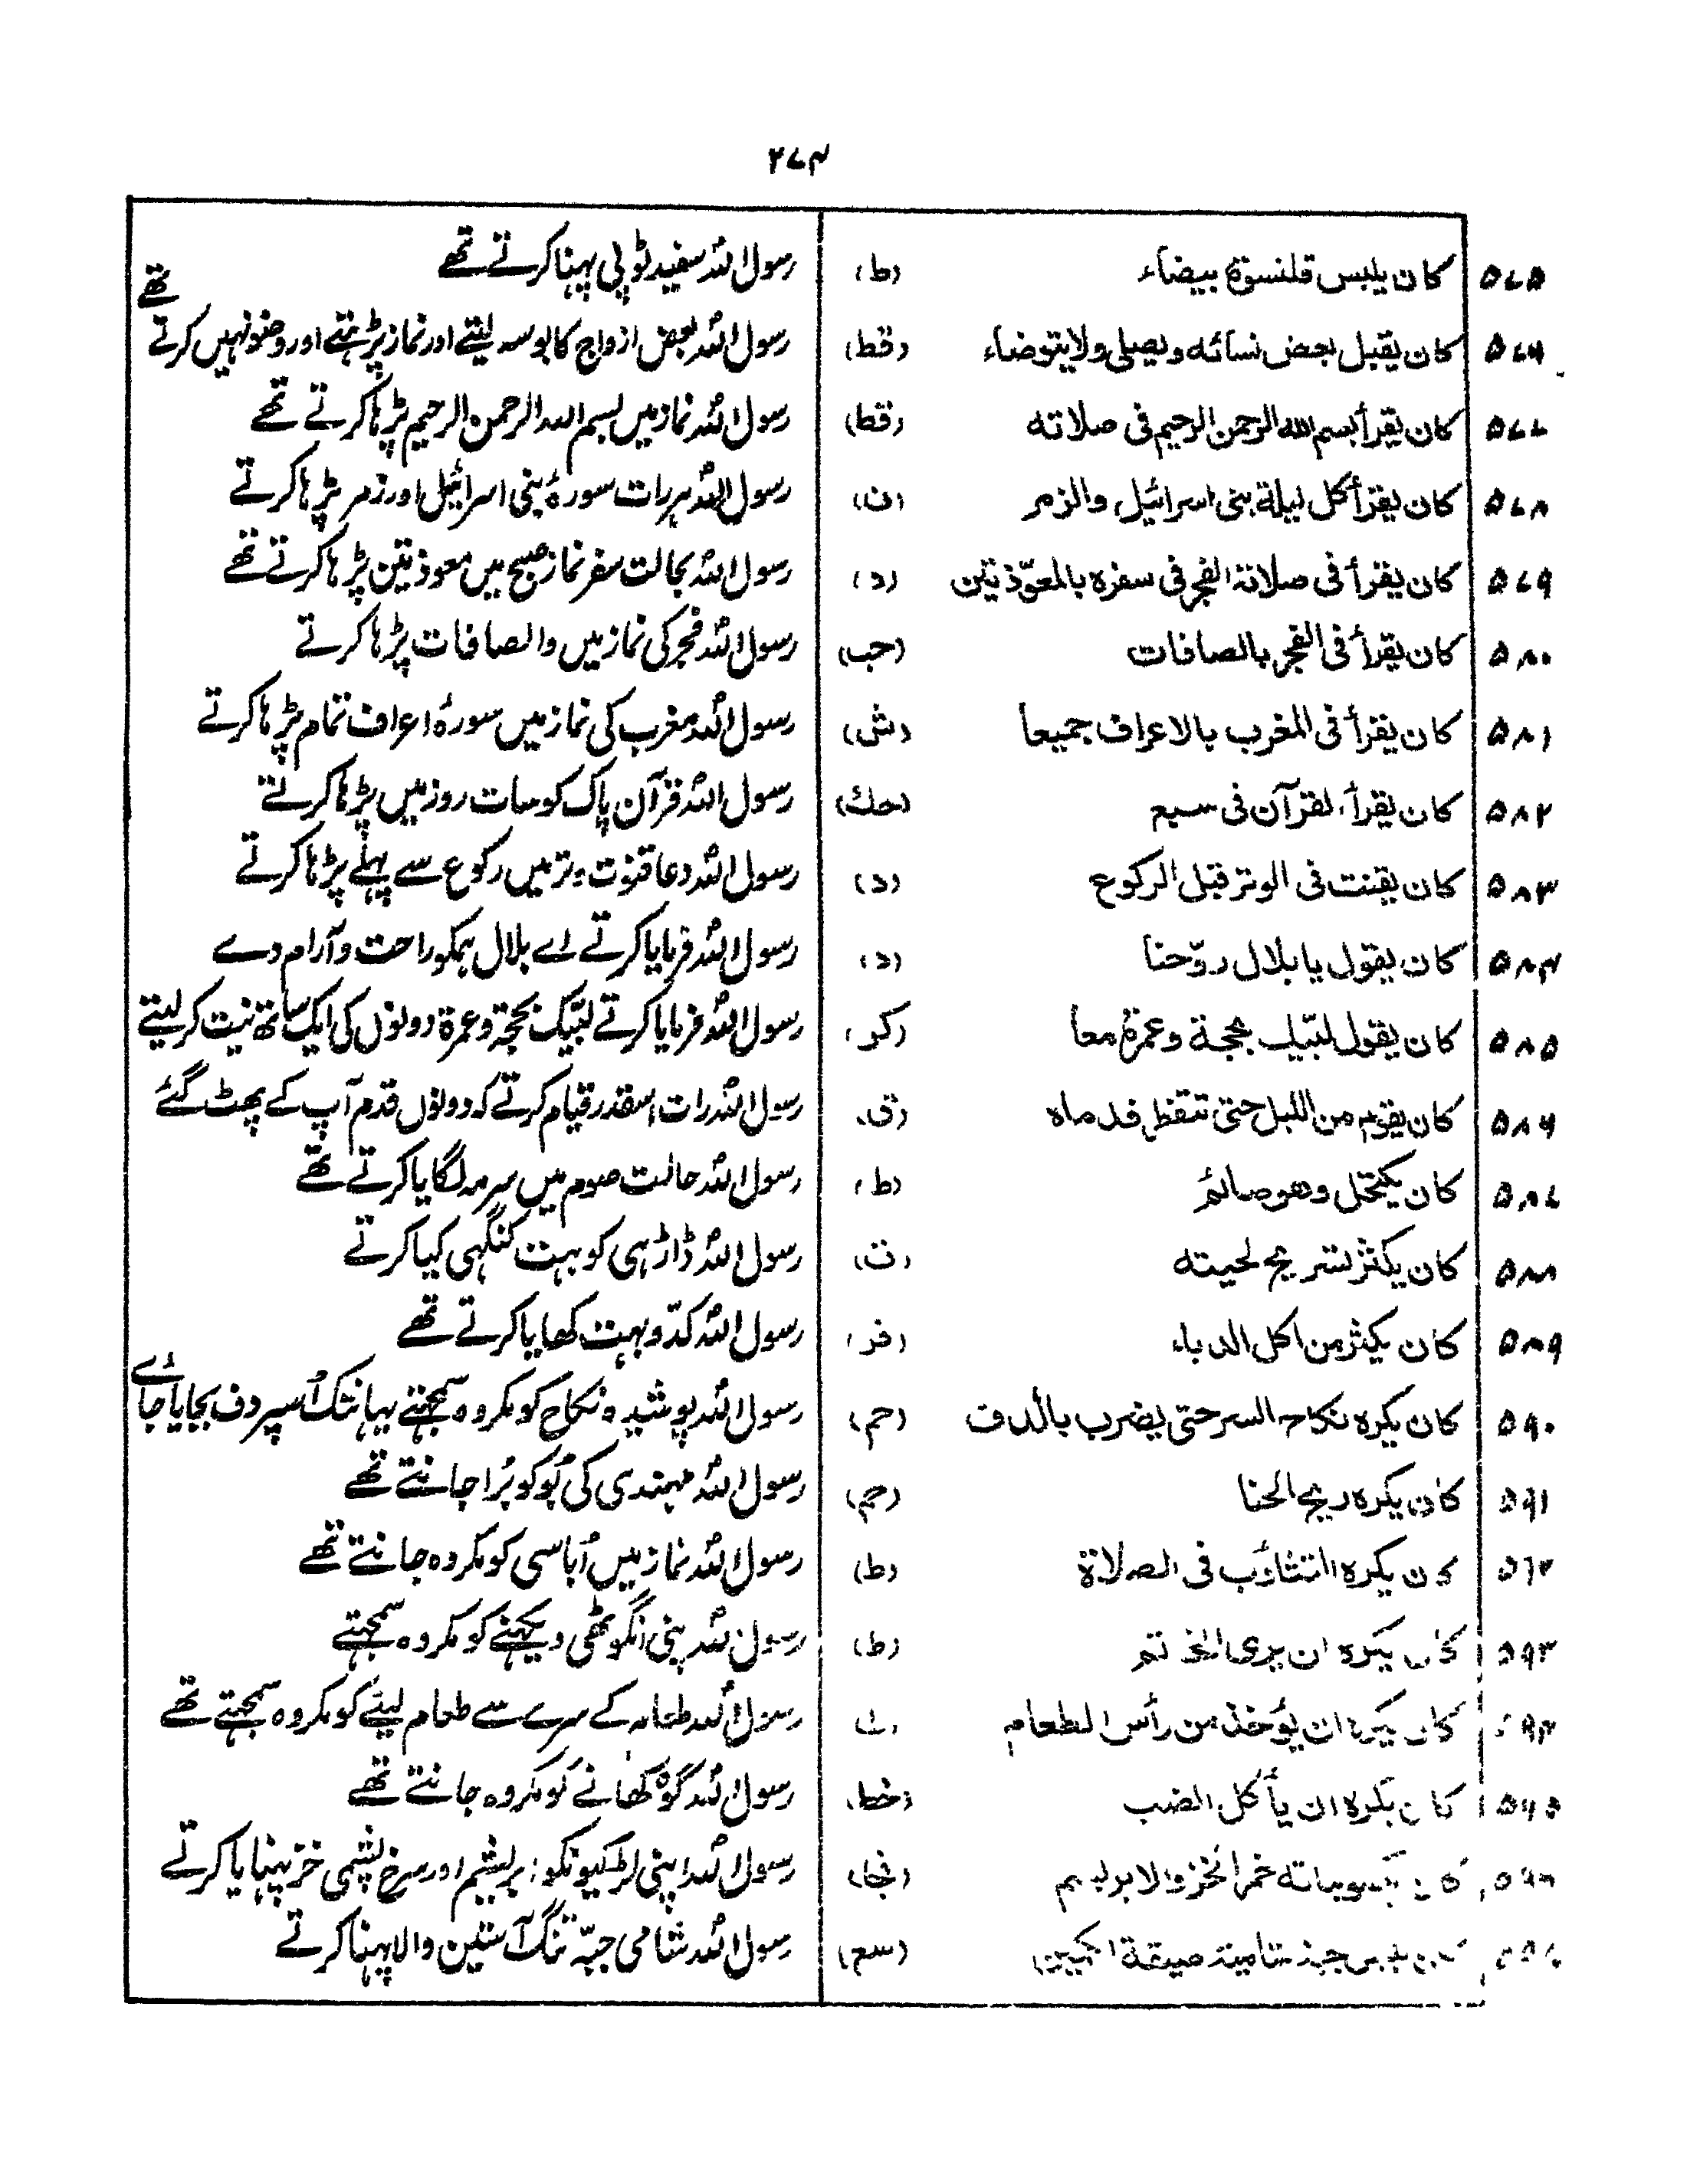 ۲۷۴
۵۷۵ کان یلبس قلنسوة بیضاء (ط) رسول اللہ سفید ٹوپی پہنا کرتے تھے
۵۷۶ کان یقبل بعض نسائه ویصلی ولا یتوضاء (قط) رسول اللہ بعض ازواج کا بوسہ لیتے اور نماز پڑہتے اور وضو نہیں کرتے تھے
۵۷۷ کان یقرأ بسم الله الرحمن الرحیم فی صلاته (قط) رسول اللہ نماز میں بسم اللہ الرحمن الرحیم پڑہا کرتے تھے
۵۷۸ کان یقرأ کل لیلة بنی اسرائیل والزمر (ن) رسول اللہ ہر رات سورۂ بنی اسرائیل اور زمر پڑہا کرتے
۵۷۹ کان یقرأ فی صلاة الفجر فی سفره بالمعوّذتین (د) رسول اللہ بحالت سفر نماز صبح میں معوذتین پڑہا کرتے تھے
۵۸۰ کان یقرأ فی الفجر بالصافات (حب) رسول اللہ فجر کی نماز میں والصافات پڑہا کرتے
۵۸۱ کان یقرأ فی المغرب بالاعراف جمیعا (ش) رسول اللہ مغرب کی نماز میں سورۂ اعراف تمام پڑہا کرتے
۵۸۲ کان یقرأ القرآن فی سبع (حك) رسول اللہ قرآن پاک کو سات روز میں پڑہا کرتے
۵۸۳ کان یقنت فی الوتر قبل الرکوع (د) رسول اللہ دعا قنوت وتر میں رکوع سے پہلے پڑہا کرتے
۵۸۴ کان یقول یا بلال روّحنا (د) رسول اللہ فرمایا کرتے اے بلال ہمکو راحت و آرام دے
۵۸۵ کان یقول لبّیك بحجة وعمرة معا (کر) رسول اللہ فرمایا کرتے لبّیک بحجۃ وعمرۃ دونوں کی ایک ساتھ نیت کر لیتے
۵۸۶ کان یقوم من اللیل حتی تتفطر قدماه (ق) رسول اللہ رات اسقدر قیام کرتے کہ دونوں قدم آپ کے پھٹ گئے
۵۸۷ کان یکتحل وهو صائم (ط) رسول اللہ حالت صوم میں سرمہ لگایا کرتے تھے
۵۸۸ کان یکثر تسریح لحیته (ت) رسول اللہ ڈاڑہی کو بہت کنگہی کیا کرتے
۵۸۹ کان یکثر من اکل الدباء (فر) رسول اللہ کدّو بہت کھایا کرتے تھے
۵۹۰ کان یکره نکاح السر حتی یضرب بالدف (حم) رسول اللہ پوشیدہ نکاح کو مکروہ سمجہتے یہانتک اُسپر دف بجایا جائے
۵۹۱ کان یکره ریح الحنا (حم) رسول اللہ مہندی کی بُو کو بُرا جانتے تھے
۵۹۲ کان یکره التثاؤب فی الصلاة (ط) رسول اللہ نماز میں اُباسی کو مکروہ جانتے تھے
۵۹۳ کان یکره ان یری الخاتم (ط) رسول اللہ اپنی انگوٹھی دیکہنے کو مکروہ سمجہتے
۵۹۴ کان یکره ان یؤخذ من رأس الطعام رسول اللہ طعام کے سرے سے طعام لینے کو مکروہ سمجہتے تھے
۵۹۵ کان یکره ان یأکل الضب (خط) رسول اللہ گوہ کھانے کو مکروہ جانتے تھے
۵۹۶ کان بناته خمر الخز والابریسم (نجا) رسول اللہ اپنی لڑکیونکو ابریشم اور سرخ پشمی خز پہنایا کرتے
۵۹۷ کان یلبس جبة شامیة ضیقة الکمین (سع) رسول اللہ شامی جبّہ تنگ آستین والا پہنا کرتے